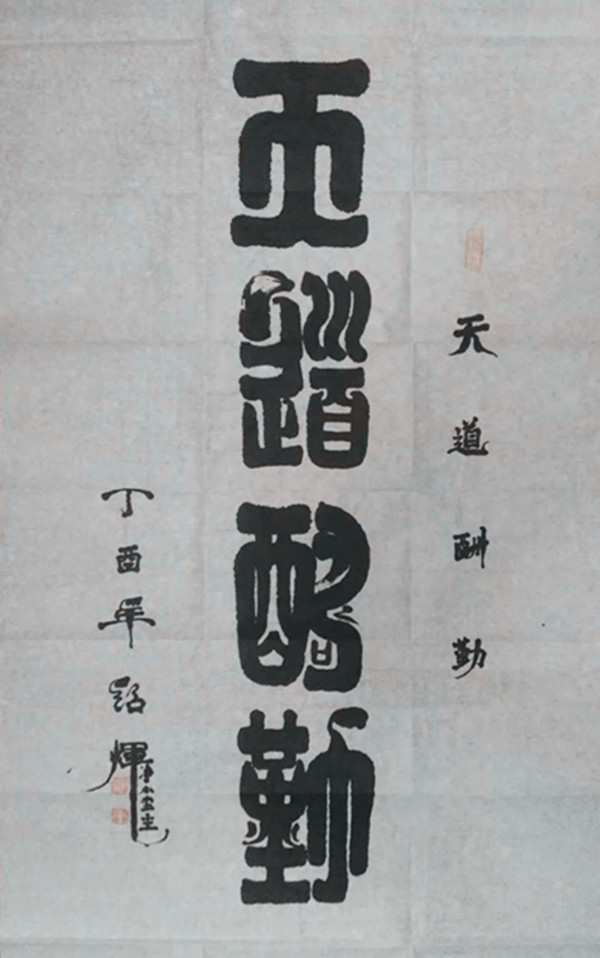 天道酬勤
天道酬勤
丁酉年绍輝